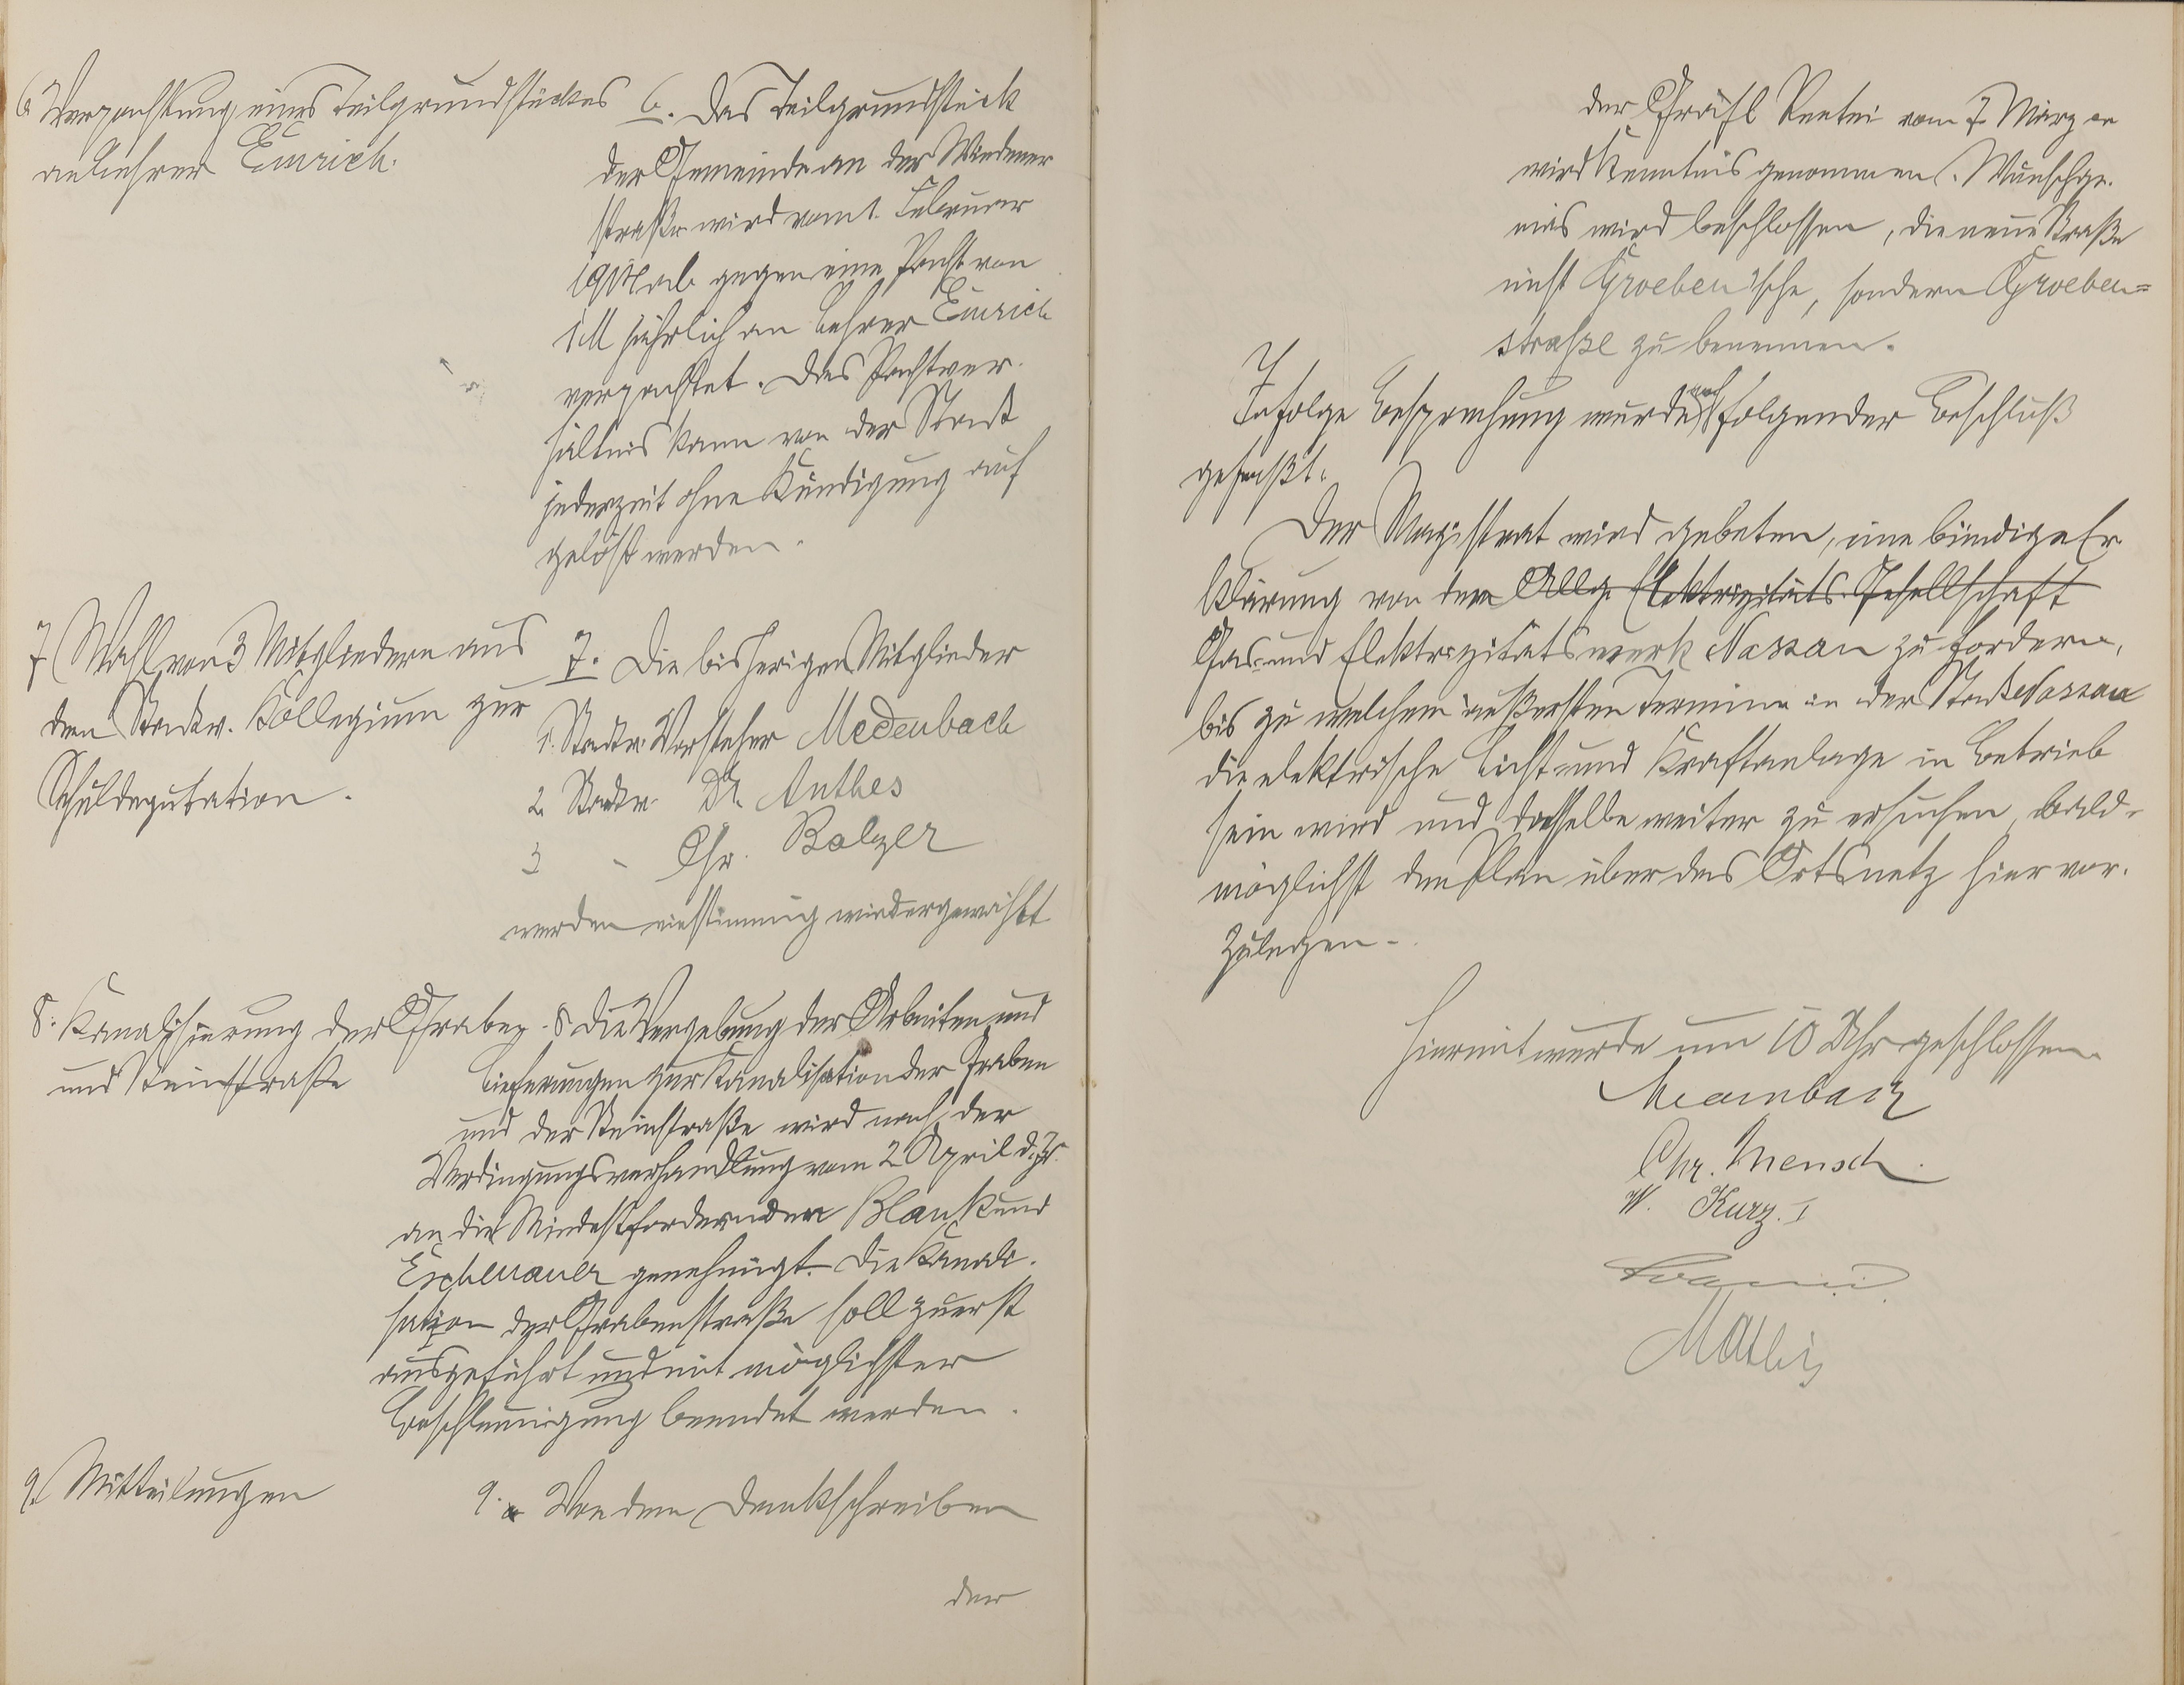 6 Verpachtung eines Teilgrundstückes
an Lehrer Emrich.
6. Das Teilgrundstück
der Gemeinde an der Windener
straße wird vom 1. Februar
ab gegen eine Pacht von
1 M jährlich an Lehrer Emrich
verpachtet. Das Pachtver-
hältnis kann von der Stadt
jederzeit ohne Kündigung auf
gelöst werden.
7 Wahl von 3 Mitgliedern aus
dem Stadtv. Kollegium zur
Schuldeputation.
7. Die bisherigen Mitglieder
1. Stadtv. Vorsteher Medenbach
2. Stadtv. Dr. Anthes
3 " Chr. Balzer
werden einstimmig wiedergewählt
8. Kanalisierung der Graben-
und Steinstraße
8. Die Vergebung der Arbeiten und
Lieferungen zur Kanalisation der Graben
und der Steinstraße wird nach der
Verdingungsverhandlung vom 2 April d. Js.
an die Mindestfordernden Blank und
Eschenauer genehmigt. Die Kanali-
sation der Grabenstraße soll zuerst
ausgeführt und mit möglichster
Beschleunigung beendet werden.
9. Mitteilungen
9. a Von dem Dankschreiben
der
der Gräfl Rentei vom 7. März cr
wird Kenntnis genommen. Wunschge-
mäs wird beschlossen, die neue Straße
nicht Groeben'sche, sondern Groeben=
straße zu benennen.
Infolge Besprechung wurde noch folgender Beschluß
gefaßt.
Der Magistrat wird gebeten, eine bündige Er
klärung von dem Allg. Elektrizitäts-Gesellschaft
Gas- und Elektrizitätswerk Nassau zu fordern,
bis zu welchem äußersten Termine in der Stadt Nassau
die elektrische Licht- und Kraftanlage in Betrieb
sein wird und dasselbe weiter zu ersuchen, bald-
möglichst den Plan über das Ortsnetz hier vor-
zulegen.
Hiermit wurde um 10 Uhr geschlossen.
Medenbach
Chr. Mensch.
W. Kurz. I
Mathis